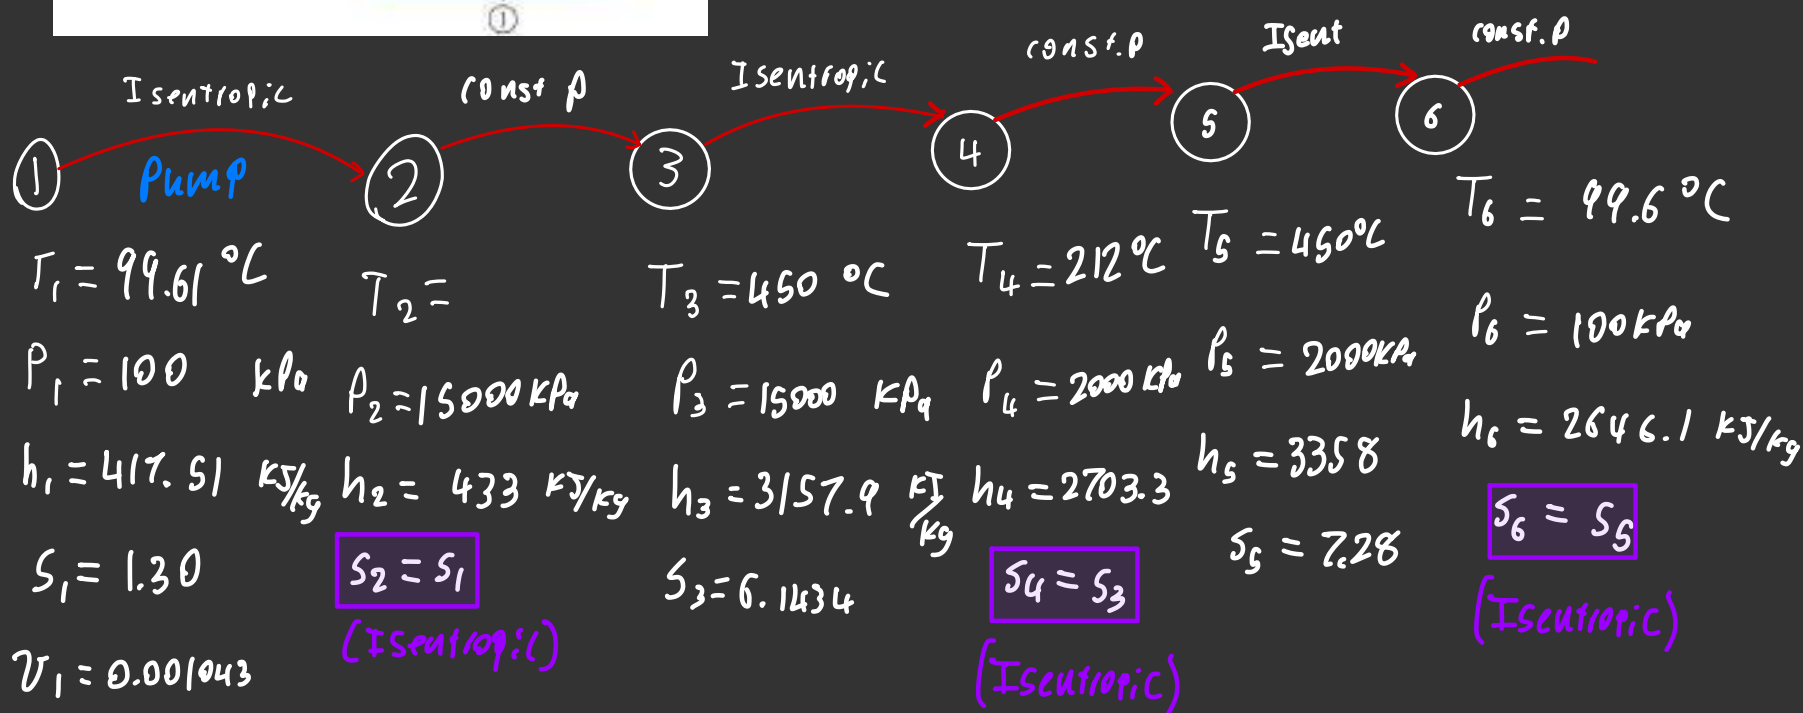 ①
Isentropic
const P
Isentropic
const.P
Isent
const.P
1
Pump
2
3
4
5
6
T₁ = 99.61 °C
P₁ = 100 kPa
h₁ = 417.51 kJ/kg
S₁ = 1.30
V₁ = 0.001043
T₂ =
P₂ = 15000 kPa
h₂ = 433 kJ/kg
S₂ = S₁
(Isentropic)
T₃ = 450 °C
P₃ = 15000 kPa
h₃ = 3157.9 kJ/kg
S₃ = 6.1434
T₄ = 212 °C
P₄ = 2000 kPa
h₄ = 2703.3
S₄ = S₃
(Isentropic)
T₅ = 450°C
P₅ = 2000 kPa
h₅ = 3358
S₅ = 7.28
T₆ = 99.6 °C
P₆ = 100 kPa
h₆ = 2646.1 kJ/kg
S₆ = S₅
(Isentropic)